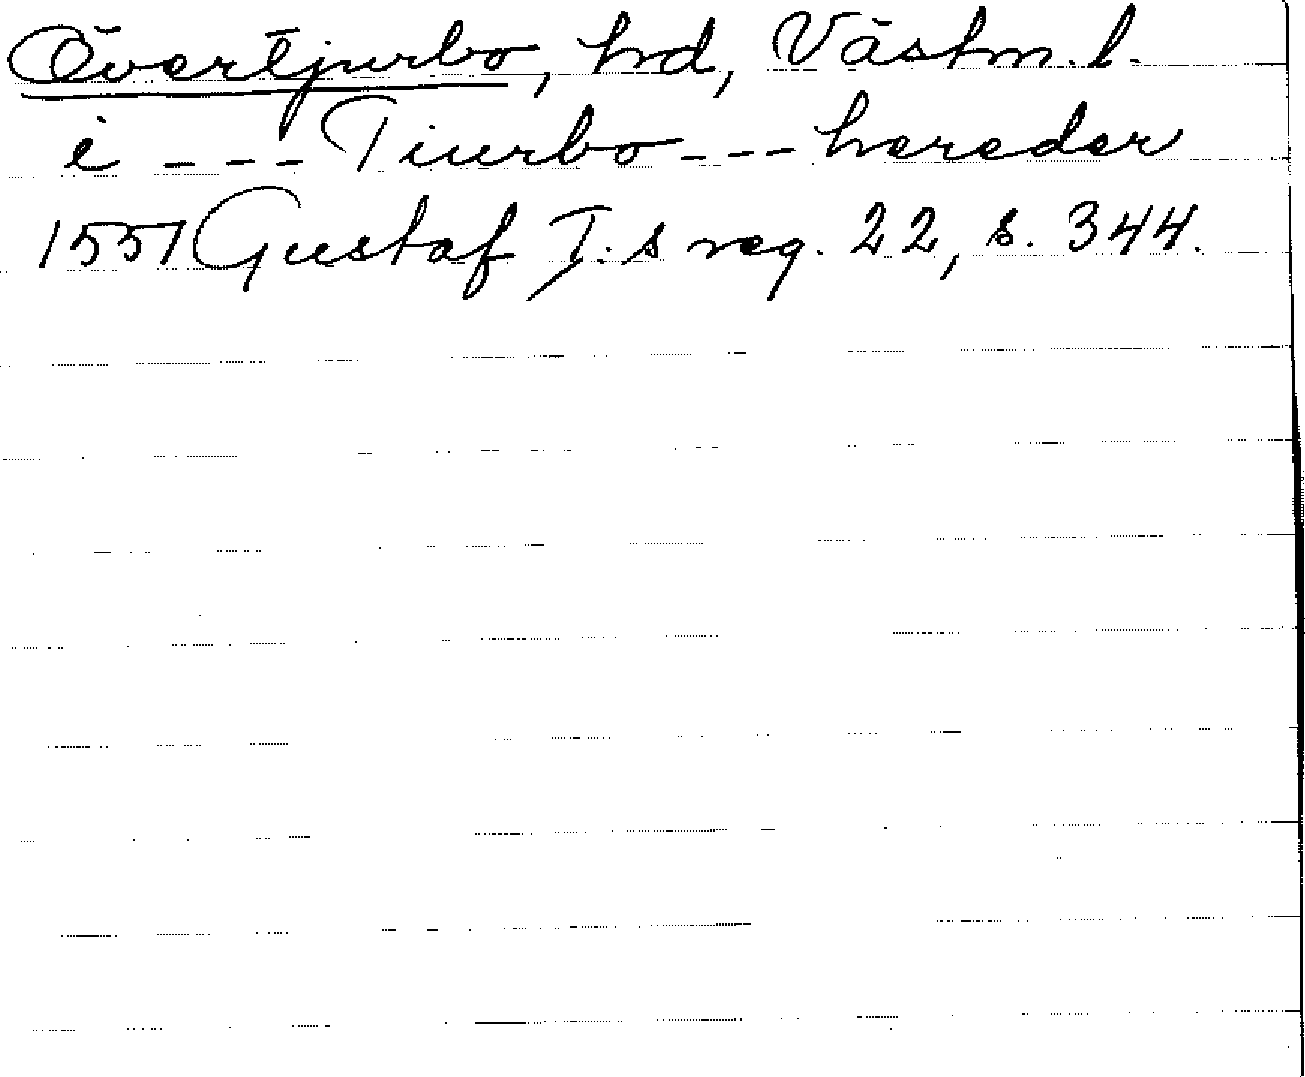 Övertjurbo, hd, Västm. l.
i --- Tiurbo --- hereder
1551 Gustaf I:s reg. 22, s. 344.